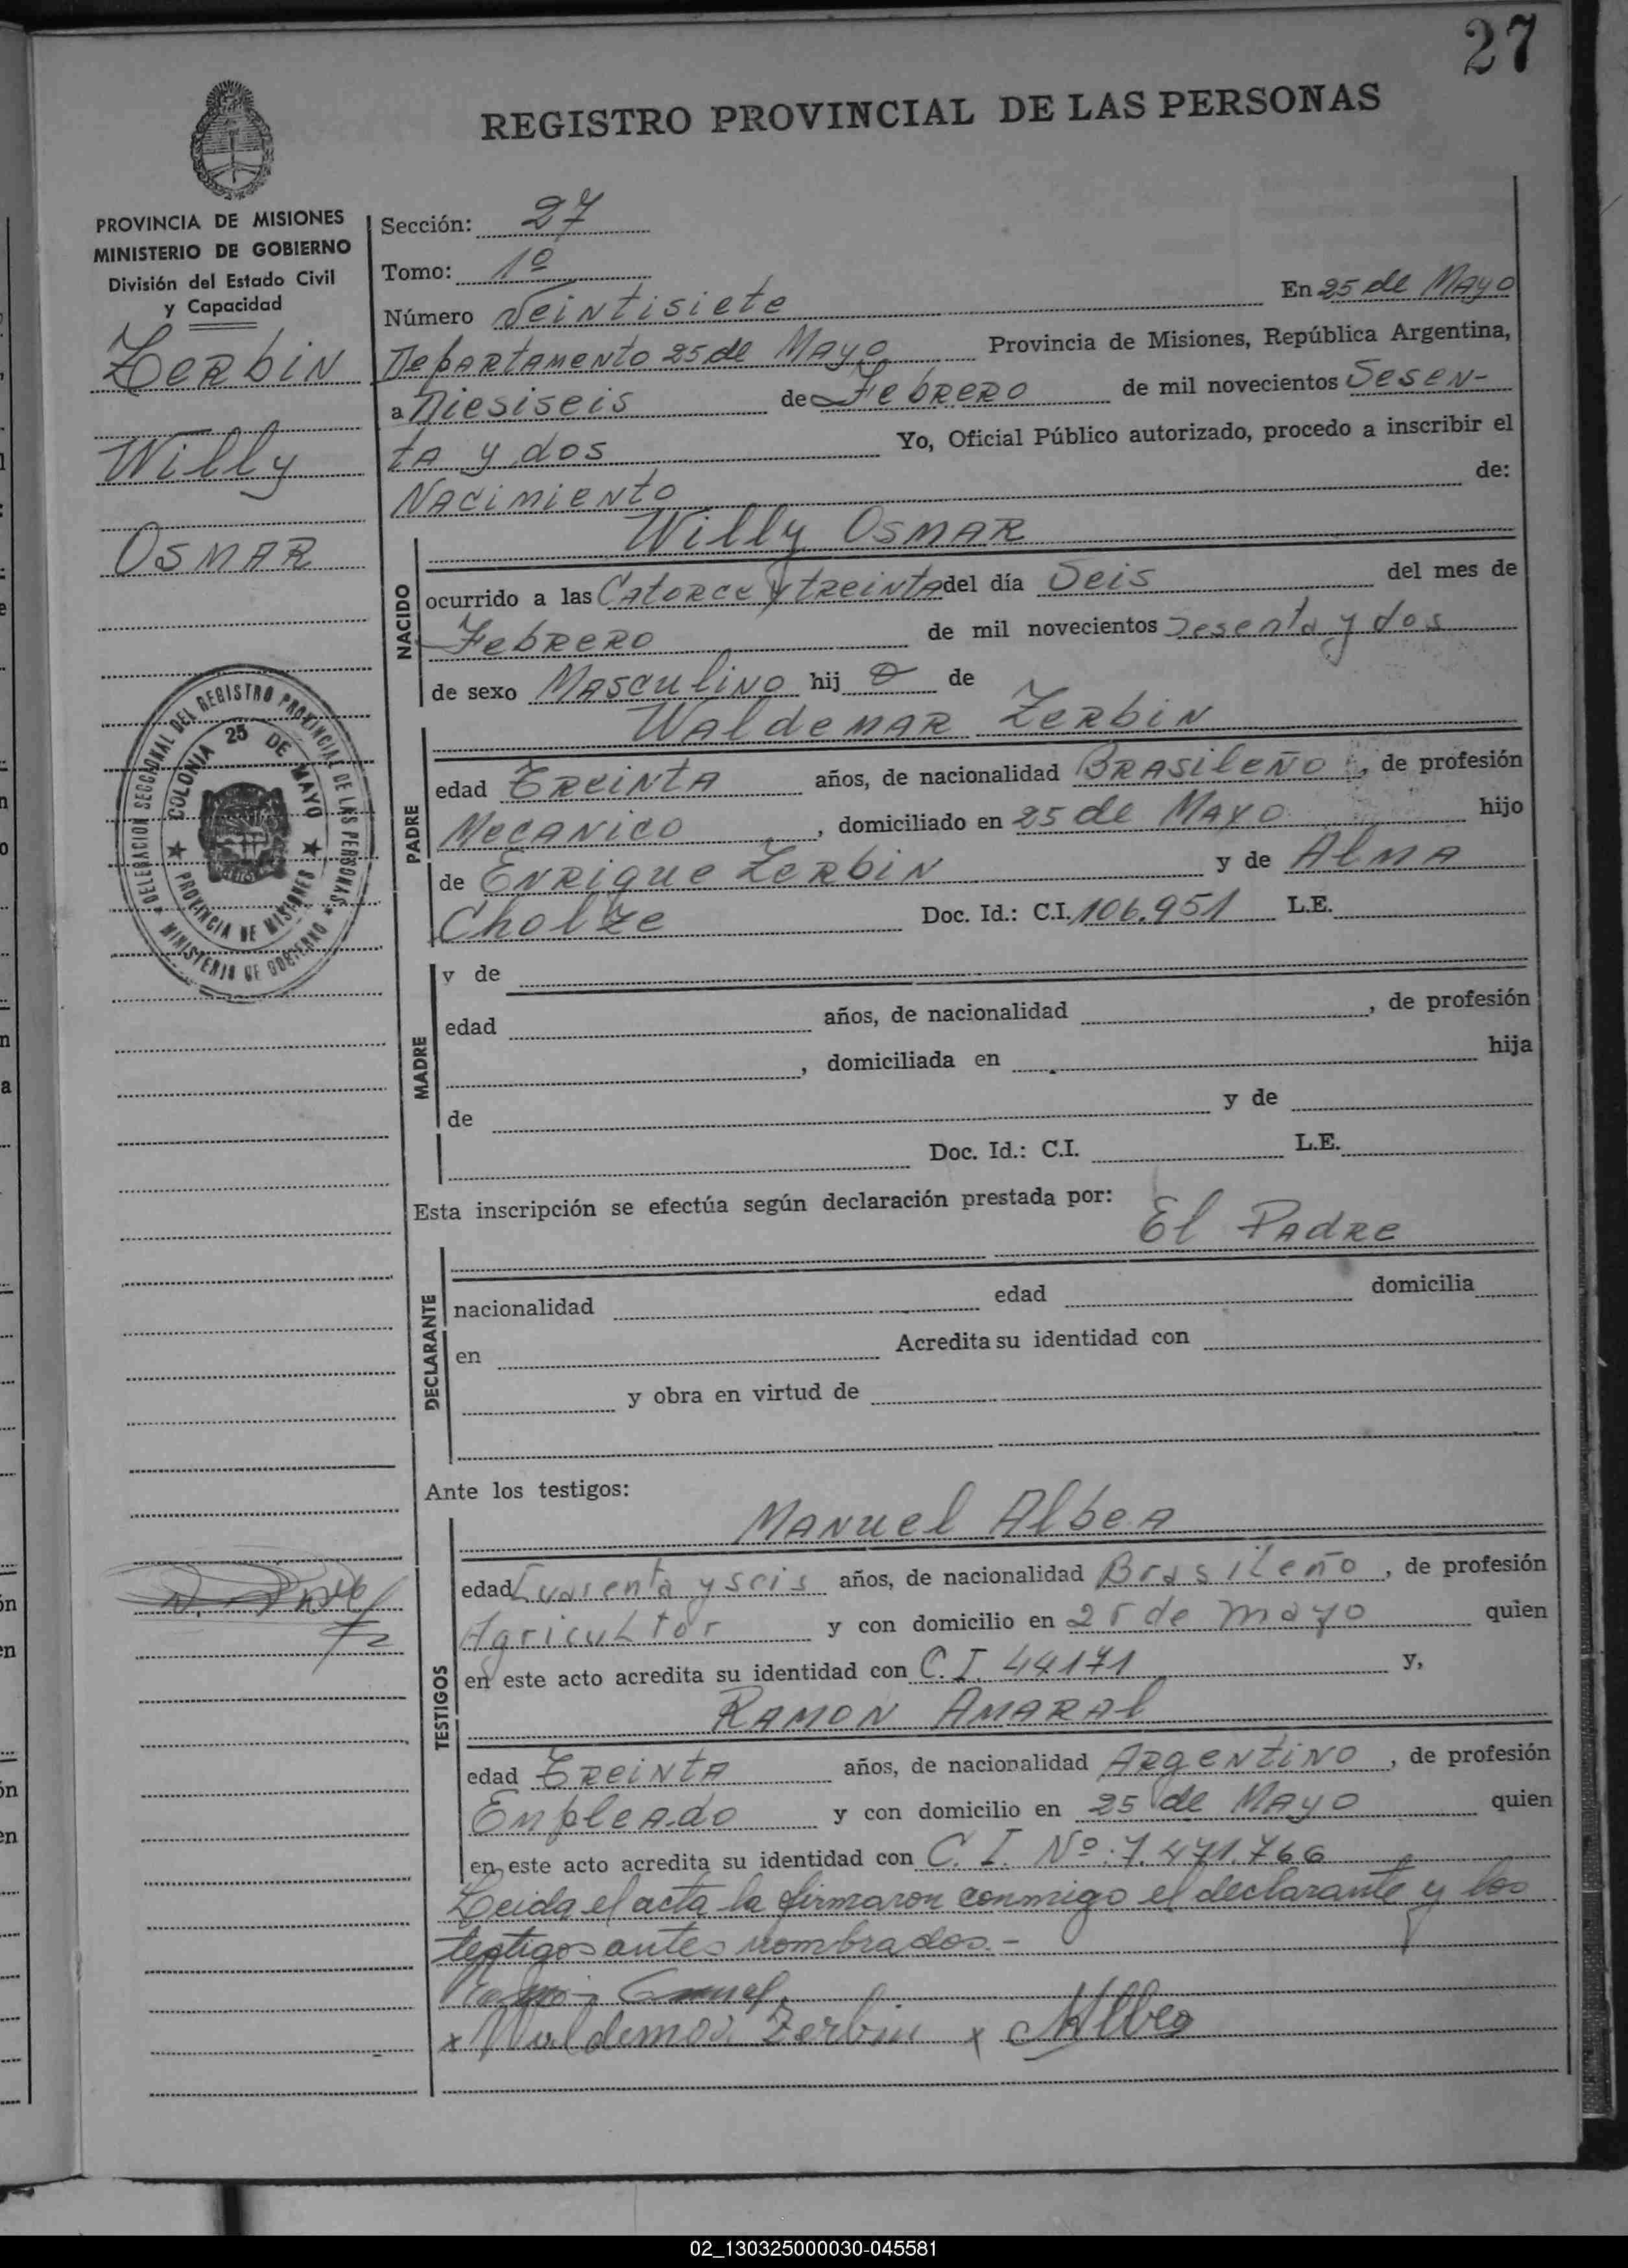 27
REGISTRO PROVINCIAL DE LAS PERSONAS
PROVINCIA DE MISIONES
MINISTERIO DE GOBIERNO
División del Estado Civil
y Capacidad
Zerbin
Willy
Osmar
DELEGACION SECCIONAL DEL REGISTRO PROVINCIAL DE LAS PERSONAS
MINISTERIO DE GOBIERNO
COLONIA 25 DE MAYO
PROVINCIA DE MISIONES
Sección: 27
Tomo: 1º
Número Veintisiete En 25 de Mayo
Departamento 25 de Mayo Provincia de Misiones, República Argentina,
a Diesiseis de Febrero de mil novecientos Sesen-
ta y dos Yo, Oficial Público autorizado, procedo a inscribir el
Nacimiento de:
Willy Osmar
NACIDO
ocurrido a las Catorce y treinta del día Seis del mes de
Febrero de mil novecientos Sesenta y dos
de sexo Masculino hij o de
Waldemar Zerbin
PADRE
edad Treinta años, de nacionalidad Brasileño, de profesión
Mecanico, domiciliado en 25 de Mayo hijo
de Enrique Zerbin y de Alma
Cholze Doc. Id.: C.I. 106.951 L.E.
MADRE
y de
edad años, de nacionalidad , de profesión
, domiciliada en hija
de y de
Doc. Id.: C.I. L.E.
Esta inscripción se efectúa según declaración prestada por:
El Padre
DECLARANTE
nacionalidad edad domicilia
en Acredita su identidad con
y obra en virtud de
Ante los testigos:
Manuel Albea
TESTIGOS
edad Cuarenta y seis años, de nacionalidad Brasileño, de profesión
Agricultor y con domicilio en 25 de mayo quien
en este acto acredita su identidad con C. I. 44171 y,
Ramon Amaral
edad Treinta años, de nacionalidad Argentino, de profesión
Empleado y con domicilio en 25 de Mayo quien
en este acto acredita su identidad con C. I. Nº: 7.471.766
Leida el acta la firmaron conmigo el declarante y los
testigos antes nombrados.-
x Waldemar Zerbin x MAlbea
02_130325000030-045581